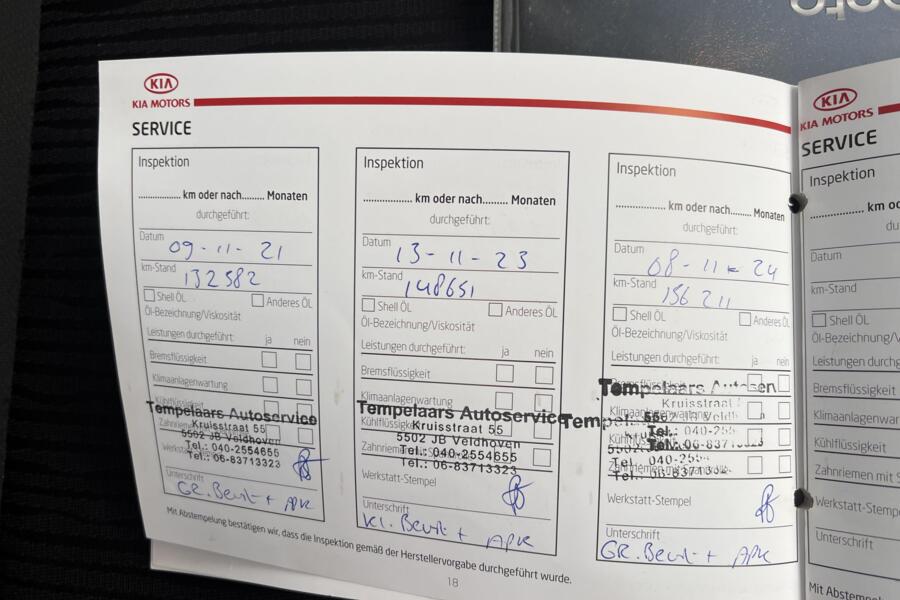 KIA
KIA MOTORS
SERVICE
Inspektion
.................. km oder nach......... Monaten
durchgeführt:
Datum
09-11-21
km-Stand
132582
Shell ÖL
Anderes ÖL
Öl-Bezeichnung/Viskosität
Leistungen durchgeführt:
ja
nein
Bremsflüssigkeit
Klimaanlagenwartung
Tempelaars Autoservice
Kruisstraat 55
5502 JB Veldhoven
Tel.: 040-2554655
Tel.: 06-83713323
Unterschrift
GR. Beurt + APK
Inspektion
.................. km oder nach......... Monaten
durchgeführt:
Datum
13-11-23
km-Stand
148651
Shell ÖL
Anderes ÖL
Öl-Bezeichnung/Viskosität
Leistungen durchgeführt:
ja
nein
Bremsflüssigkeit
Klimaanlagenwartung
Tempelaars Autoservice
Kruisstraat 55
5502 JB Veldhoven
Tel.: 040-2554655
Tel.: 06-83713323
Werkstatt-Stempel
Unterschrift
Kl. Beurt + APK
Inspektion
.................. km oder nach......... Monaten
durchgeführt:
Datum
08-11-24
km-Stand
156211
Shell ÖL
Anderes ÖL
Öl-Bezeichnung/Viskosität
Leistungen durchgeführt:
ja
nein
Tempelaars
Kruisstraat
Werkstatt-Stempel
Unterschrift
GR. Beurt + APK
Mit Abstempelung bestätigen wir, dass die Inspektion gemäß der Herstellervorgabe durchgeführt wurde.
18
KIA
KIA MOTORS
SERVICE
Inspektion
Datum
km-Stand
Shell ÖL
Öl-Bezeichnung/Viskosität
Leistungen
Bremsflüssigkeit
Klimaanlagenwartung
Kühlflüssigkeit
Zahnriemen mit
Werkstatt-Stempel
Unterschrift